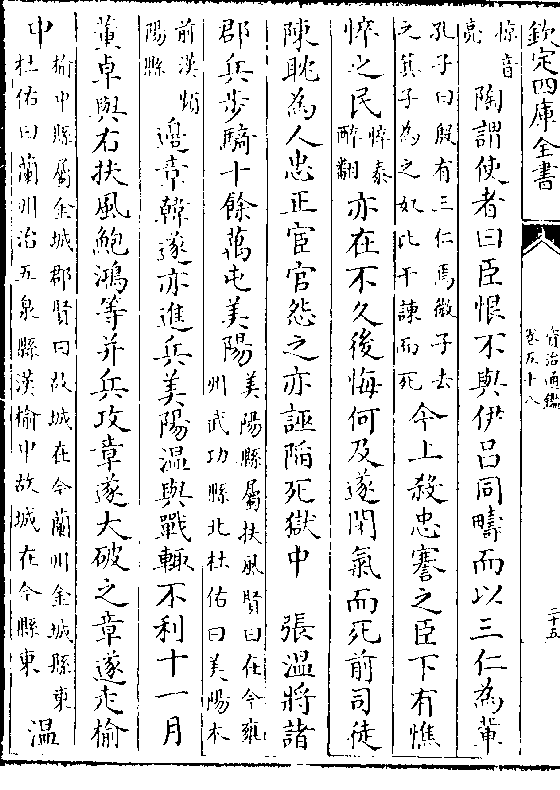 欽定四庫全書
資治通鑑
卷五十八
二十五
惊音
亮
陶謂使者曰臣恨不與伊吕同疇而以三仁為輩
孔子曰殷有三仁焉微子去
之箕子為之奴比干諫而死
今上殺忠謇之臣下有憔
悴之民
悴秦
醉翻
亦在不久後悔何及遂閉氣而死前司徒
陳耽為人忠正宦官怨之亦誣陷死獄中　張温將諸
郡兵步騎十餘萬屯美陽
美陽縣屬扶風賢曰在今雍
州武功縣北杜佑曰美陽本
前漢頻
陽縣
邉章韓遂亦進兵美陽温與戰輒不利十一月
董卓與右扶風鮑鴻等并兵攻章遂大破之章遂走榆
中
榆中縣屬金城郡賢曰故城在今蘭州金城縣東
杜佑曰蘭州治五泉縣漢榆中故城在今縣東
温